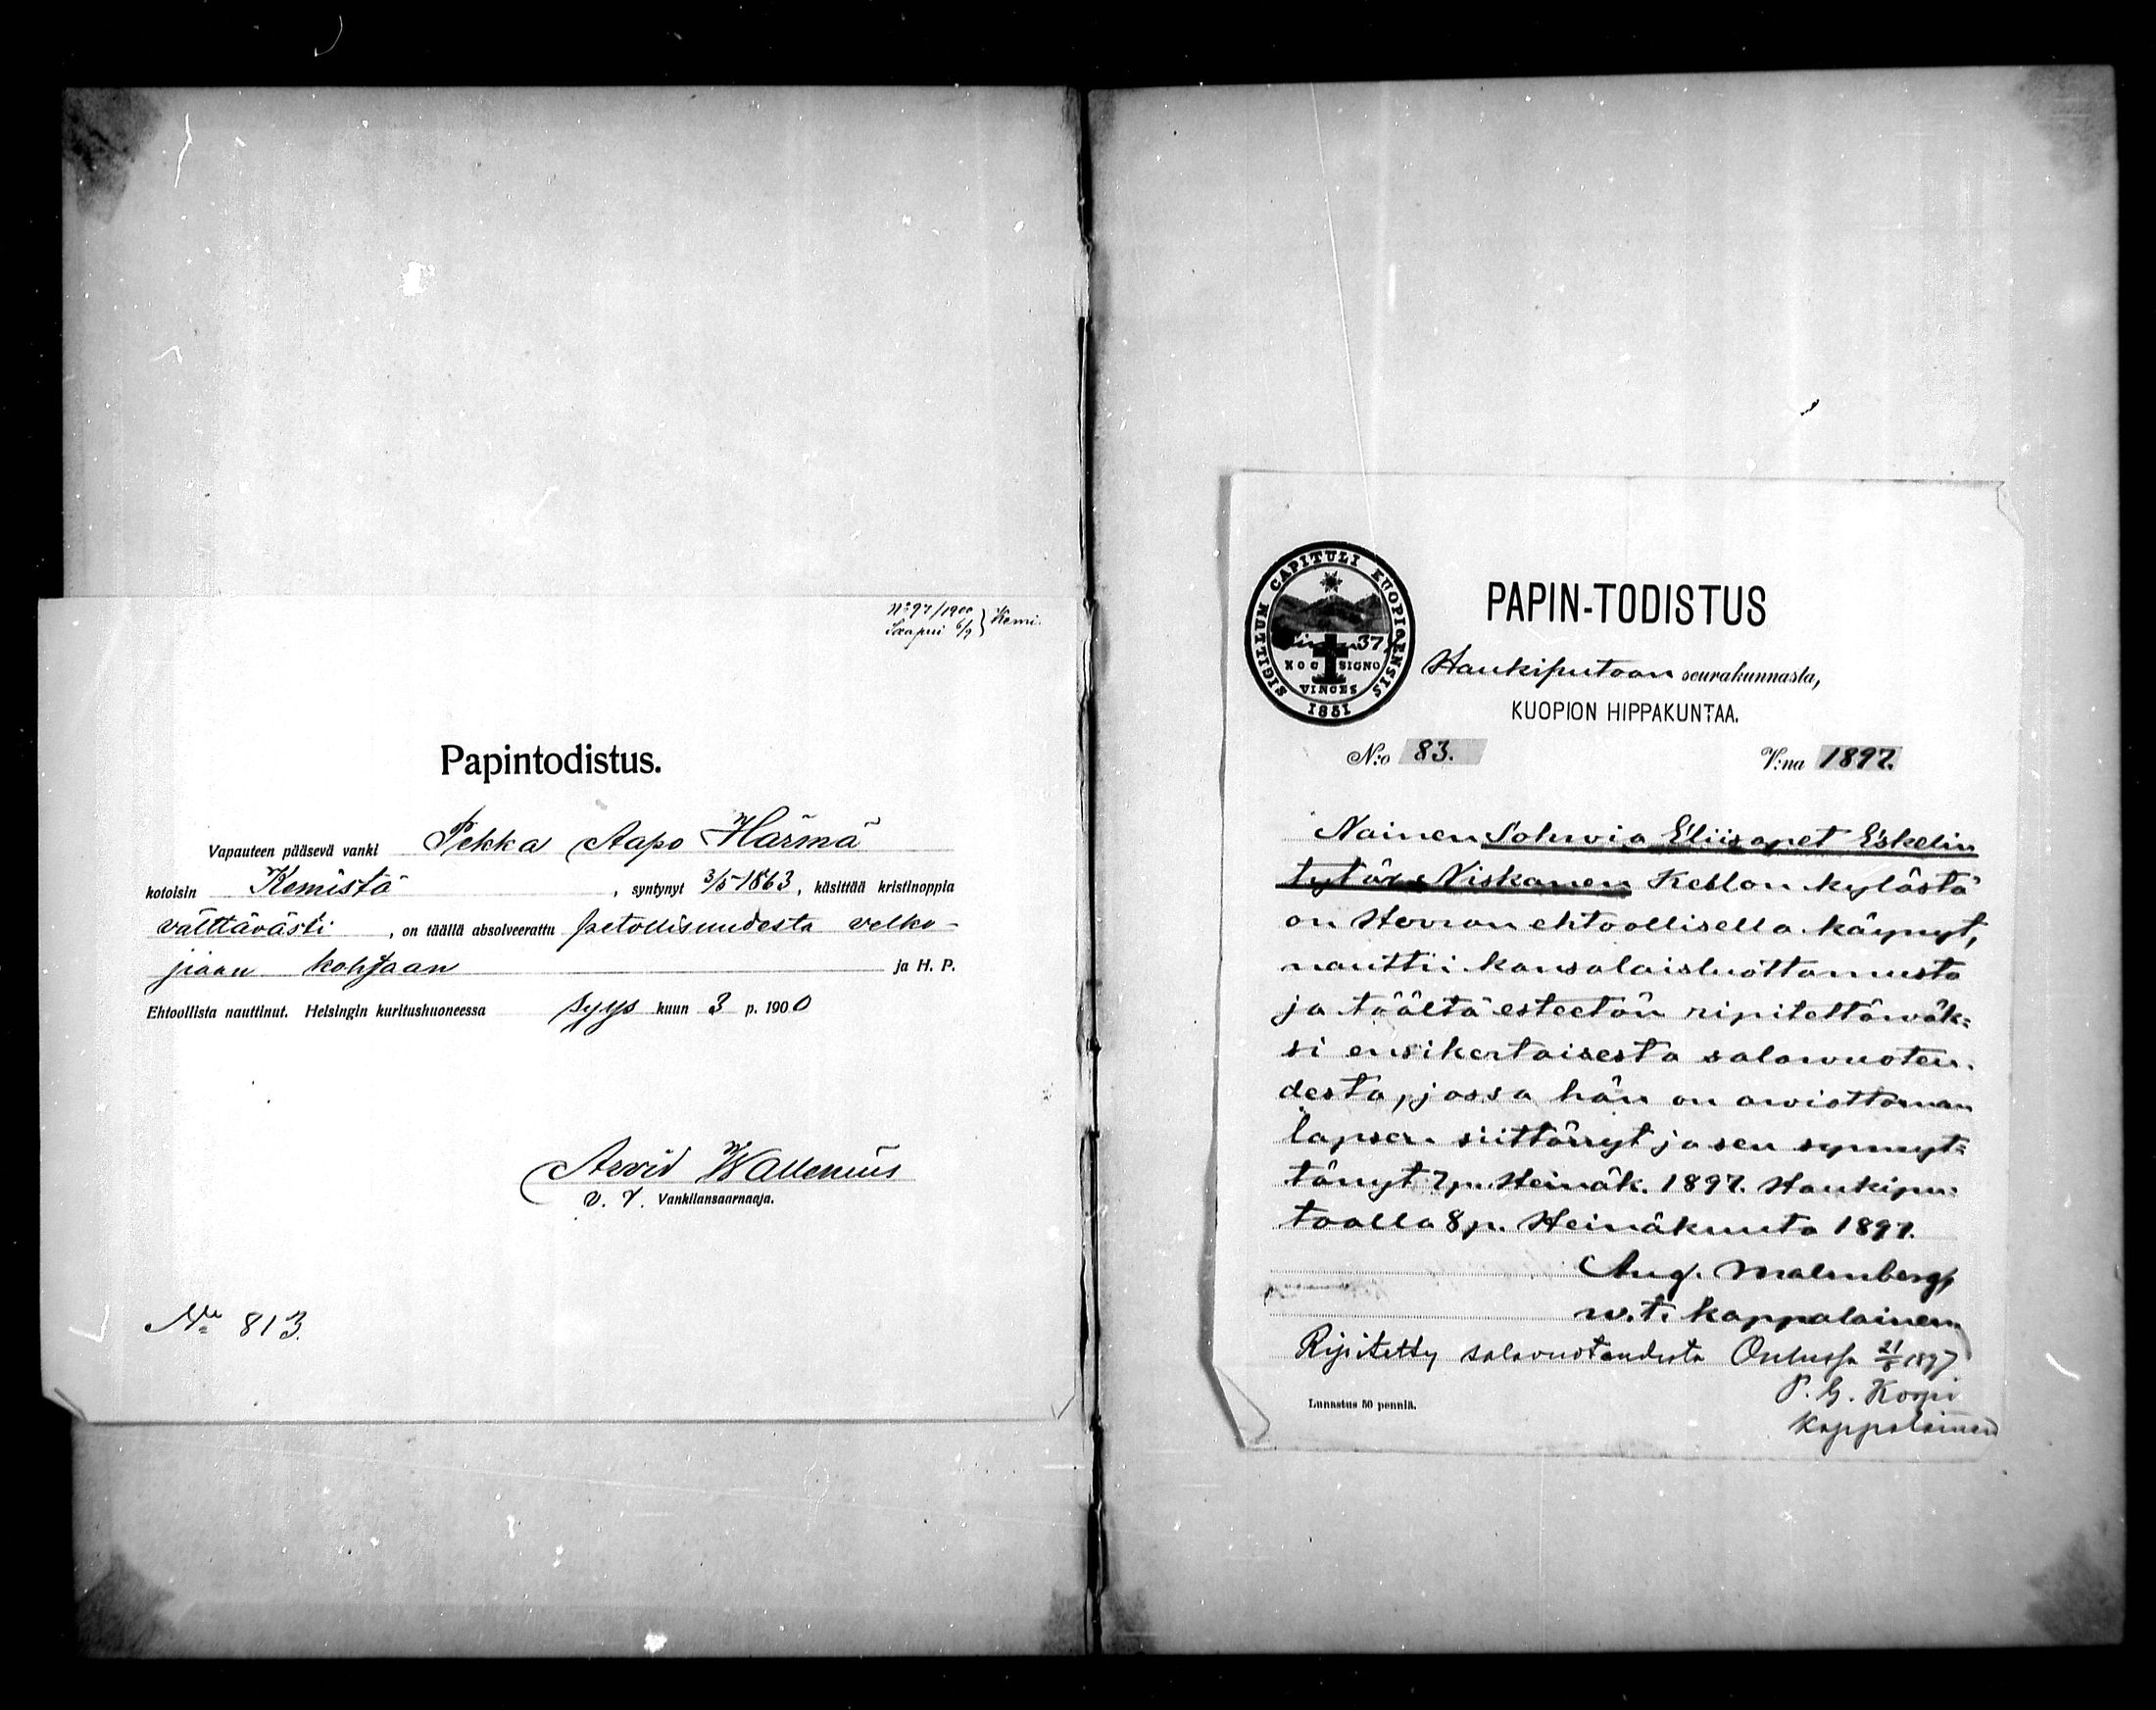 No 97/1900
Saapui 6/9 } Kemi.
Papintodistus.
Vapauteen pääsevä vanki Pekka Aapo Härmä
kotoisin Kemistä , syntynyt 3/5 1863, käsittää kristinoppia
välttävästi , on täällä absolveerattu petollisuudesta velko-
jiaan kohtaan ja H. P.
Ehtoollista nauttinut. Helsingin kuritushuoneessa syys kuun 3 p. 1900
Arvid Wallenius
v. t. Vankilansaarnaaja.
No 813.
SIGILLUM CAPITULI KUOPIOENSIS
37
HOC SIGNO
VINCES
1851
PAPIN-TODISTUS
Haukiputaan seurakunnasta,
KUOPION HIPPAKUNTAA.
N:o 83. V:na 1897.
Nainen Sohwia Eliisapet Eskelin
tytär Niskanen Kellon kylästä
on Herran ehtoollisella käynyt,
nauttii kansalaisluottamusta
ja täältä esteetön ripitettäwäk=
si ensikertaisesta salawuoteu-
desta, jossa hän on awiottoman
lapsen siittänyt ja sen synnyt=
tänyt 7 p. Heinäk. 1897. Haukipu=
taalla 8 p. Heinäkuuta 1897.
Aug. Malmberg,
w.t. kappalainen
Ripitetty salavuoteudesta Oulussa 21/8 1897
P. G. Korpi
Kappalainen
Lunastus 50 penniä.